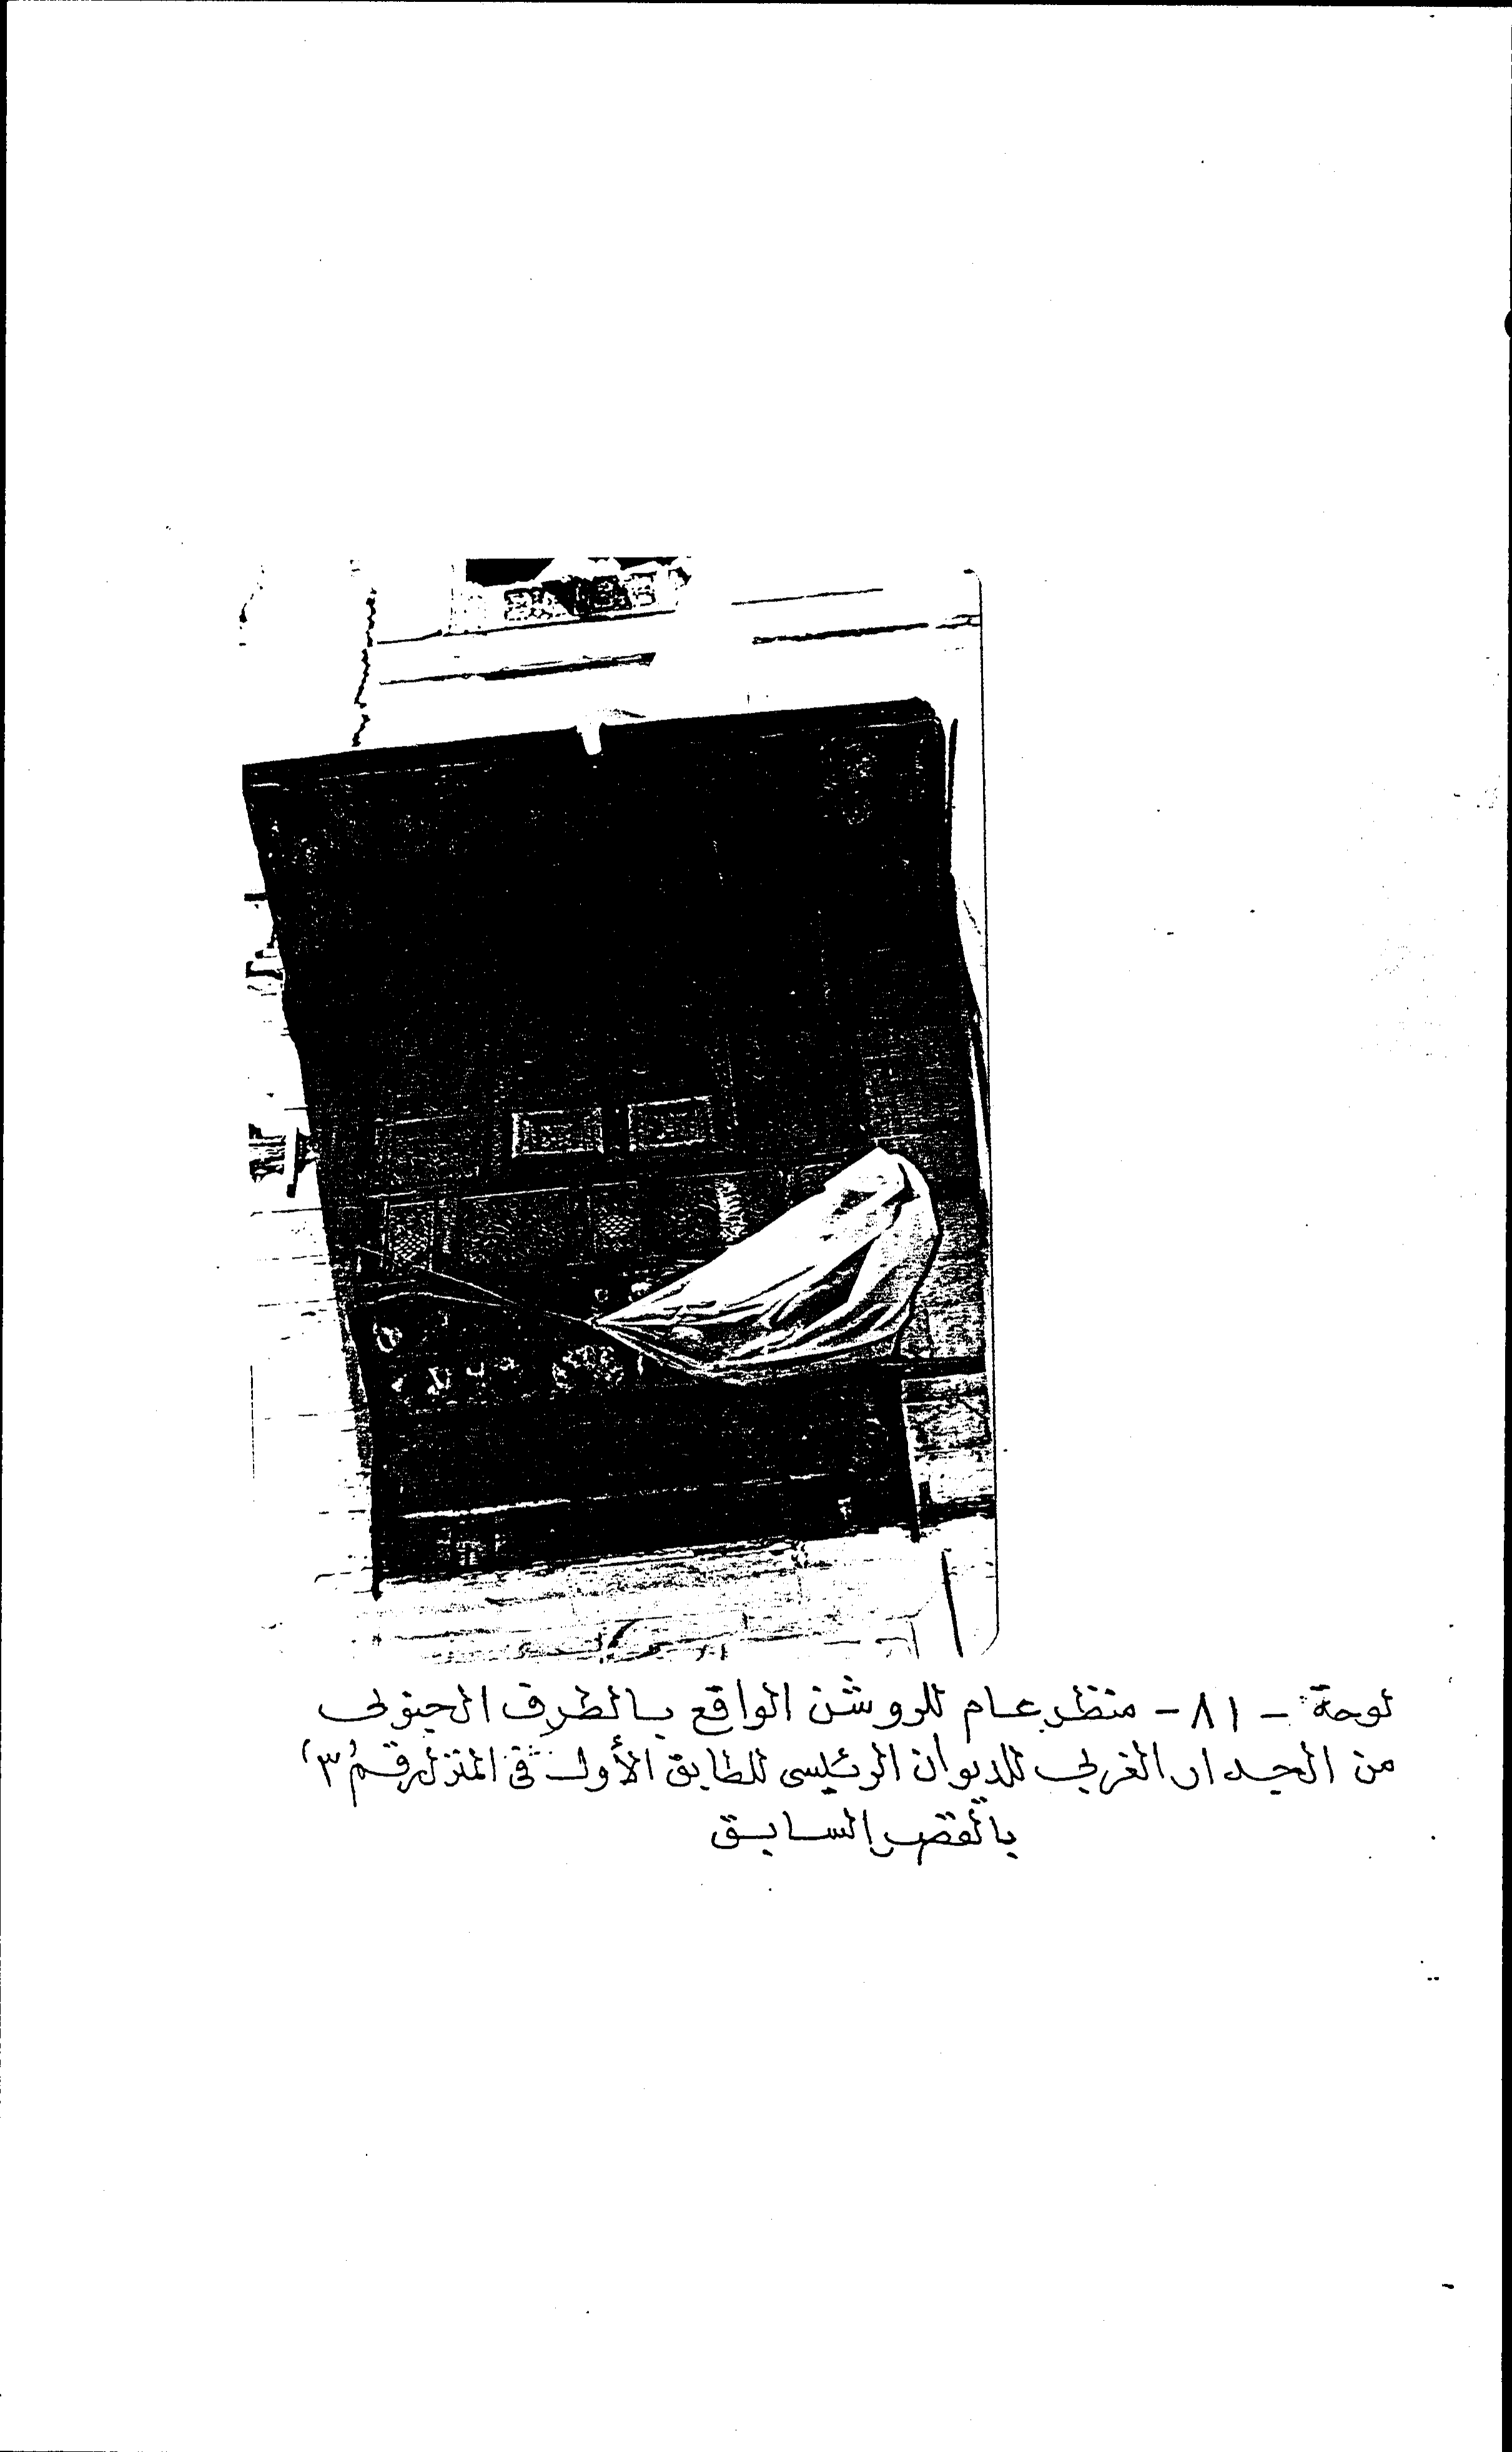 لوحة - ٨١ - منظر عام للروشن الواقع بالطرف الجنوبى
من الجدار الغربى للديوان الرئيسى للطابق الأول فى المنزل رقم (٣)
بالقصر السابق